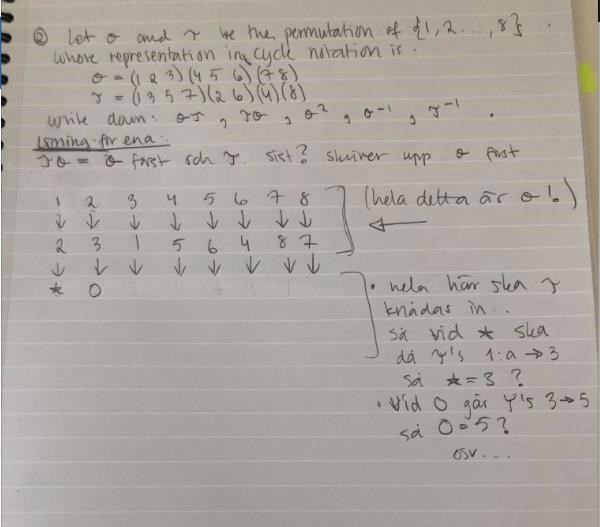 ② Let σ and τ be the permutation of {1, 2 ..., 8}
whose representation in cycle notation is:
σ = (1 2 3)(4 5 6)(7 8)
τ = (1 3 5 7)(2 6)(4)(8)
write down: στ, τσ, σ², σ⁻¹, τ⁻¹.
Lösning för ena:
τσ = σ först och τ sist? skriver upp σ först
1 2 3 4 5 6 7 8
↓ ↓ ↓ ↓ ↓ ↓ ↓ ↓
(hela detta är σ!)
←
2 3 1 5 6 4 8 7
↓ ↓ ↓ ↓ ↓ ↓ ↓ ↓
* O
• hela här ska τ
knådas in..
så vid * ska
då τ's 1:a → 3
så * = 3 ?
• Vid O går τ's 3 → 5
så O = 5 ?
osv...